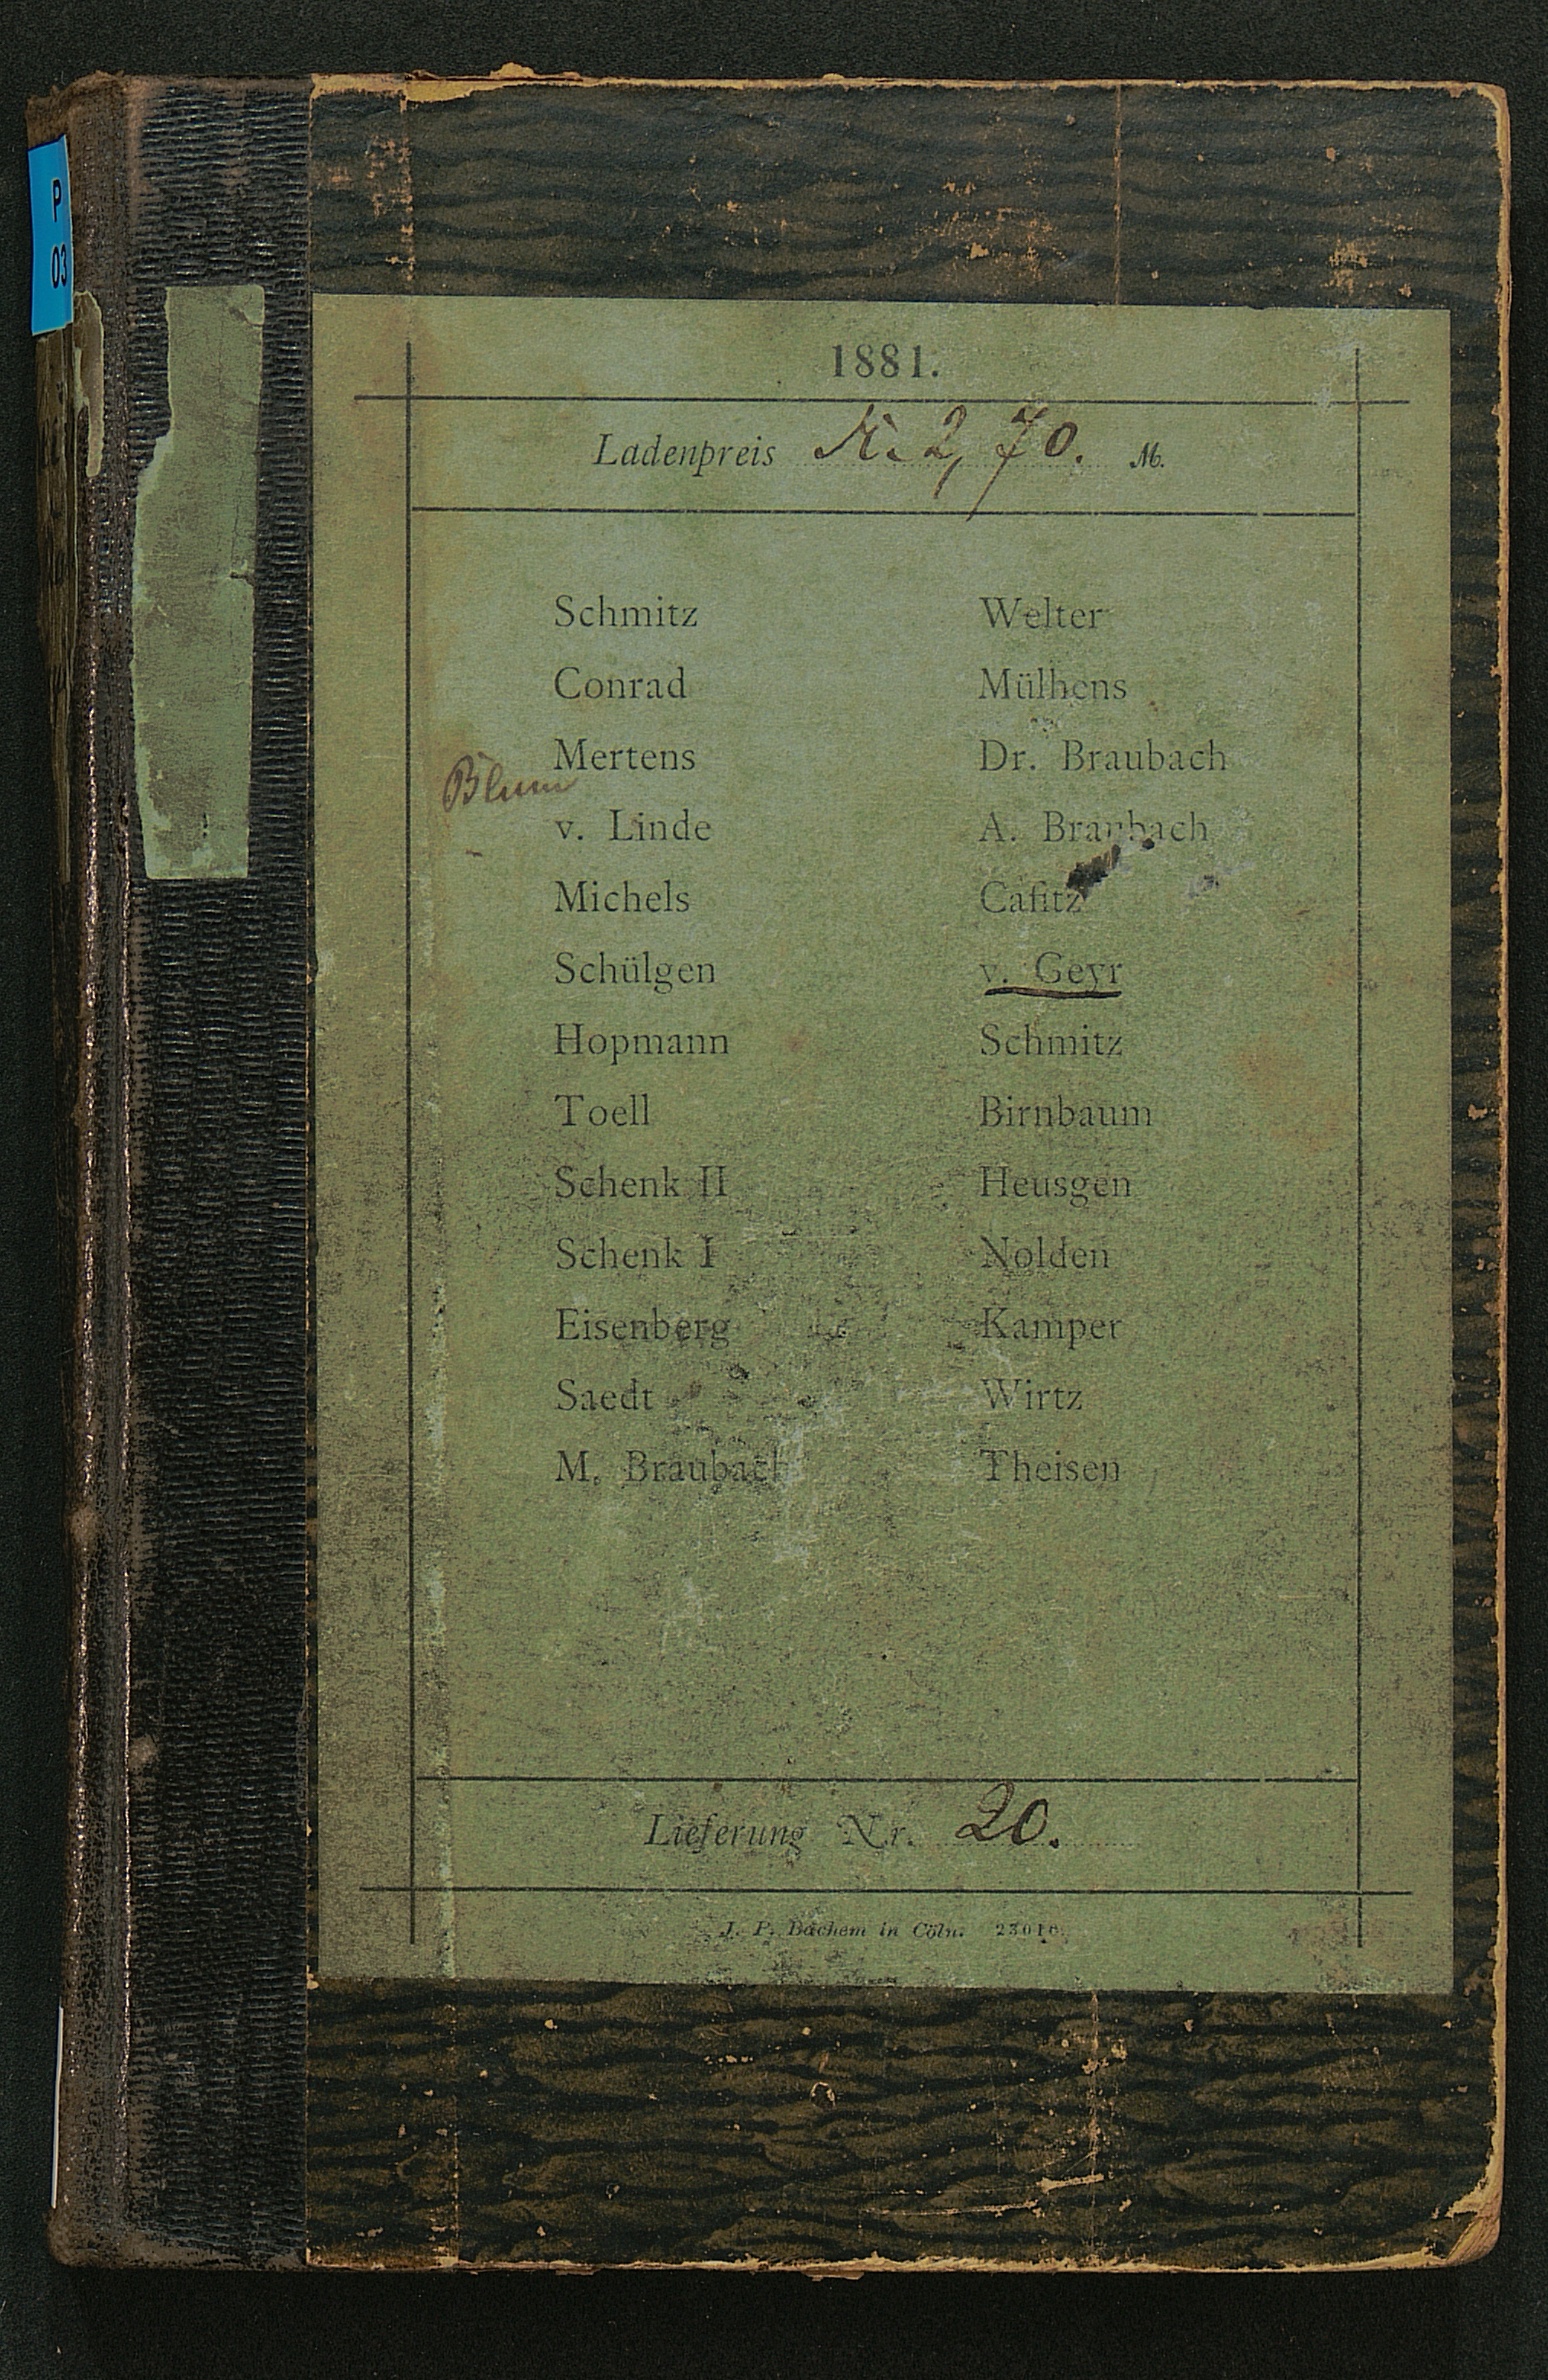 P
03
1881.
Ladenpreis M. 2,70. M.
Schmitz
Conrad
Mertens
Blum
v. Linde
Michels
Schülgen
Hopmann
Toell
Schenk II
Schenk I
Eisenberg
Saedt
M. Braubach
Welter
Mülhens
Dr. Braubach
A. Braubach
Cafitz
v. Geyr
Schmitz
Birnbaum
Heusgen
Nolden
Kamper
Wirtz
Theisen
Lieferung Nr. 20.
J. P. Bachem in Cöln.